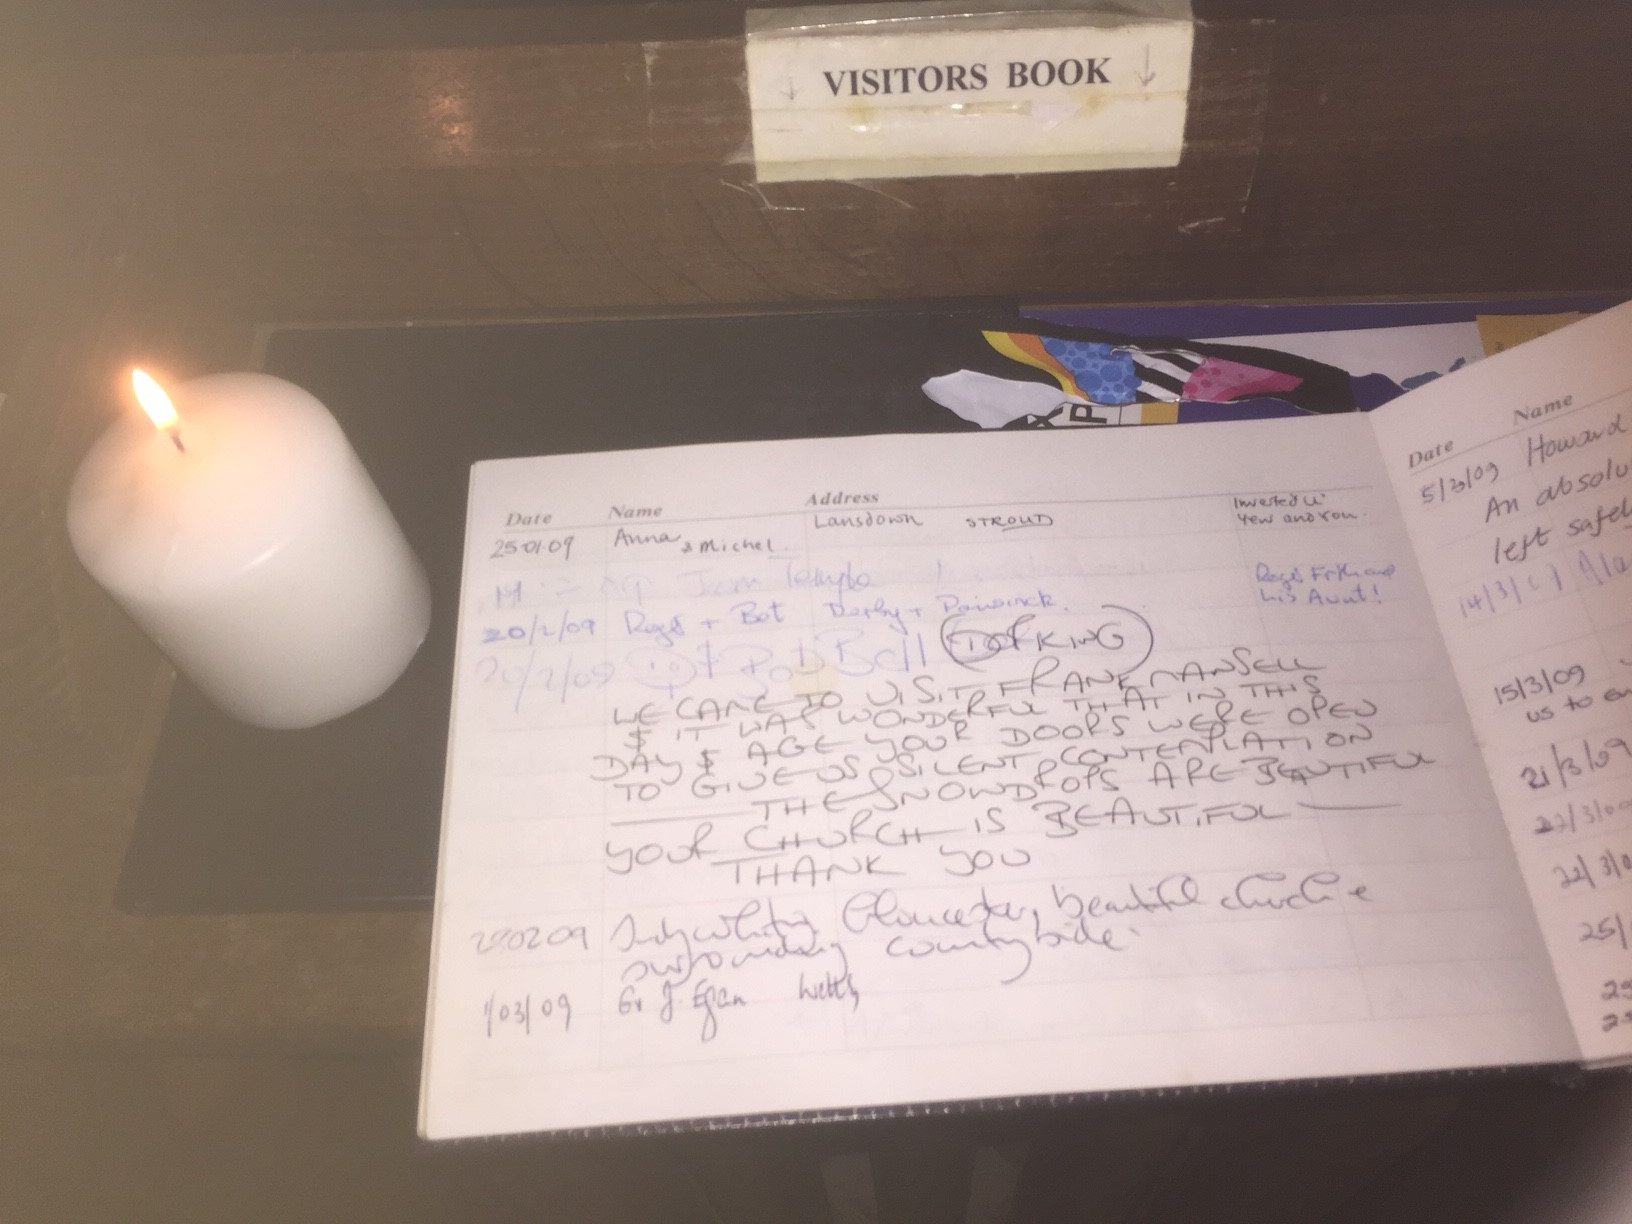 VISITORS BOOK
Date Name Address
25.01.09 Anna & Michel Lansdown STROUD
Yew and You
20/2/09 + Derby +
his Aunt!
20/2/09 Bell DORKING
WE CAME TO VISIT FRANK MANSELL
& IT WAS WONDERFUL THAT IN THIS
DAY & AGE YOUR DOORS WERE OPEN
TO GIVE US SILENT CONTEMPLATION
THE SNOWDROPS ARE BEAUTIFUL
YOUR CHURCH IS BEAUTIFUL
THANK YOU
Gloucester, beautiful church &
surrounding countryside.
1/03/09 J. Egan
Date Name
5/3/09 Howard
An absolu
left safel
14/3/
15/3/09
us to en
21/3/09
22/3/0
24/3/0
25/